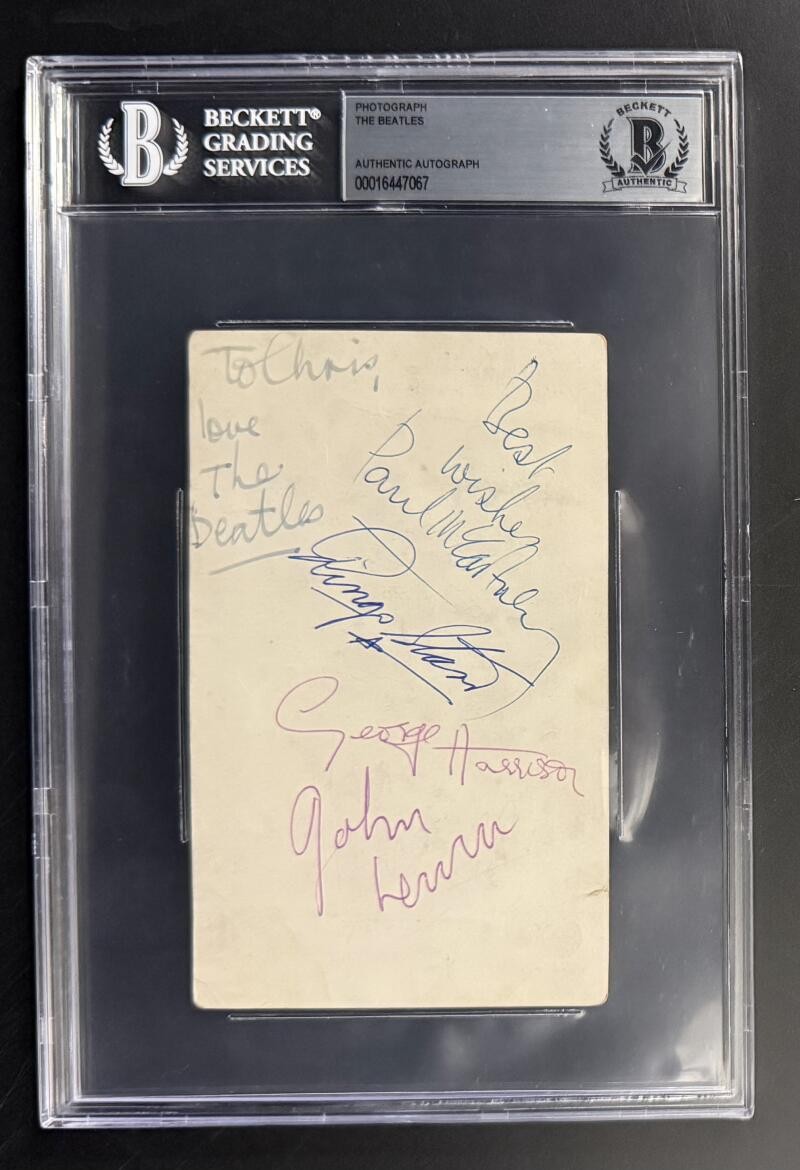 B
BECKETT®
GRADING
SERVICES
PHOTOGRAPH
THE BEATLES
AUTHENTIC AUTOGRAPH
00016447067
BECKETT
B
AUTHENTIC
To Chris,
love
The
Beatles
Best
wishes
Paul McCartney
Ringo Starr
George Harrison
John
Lennon